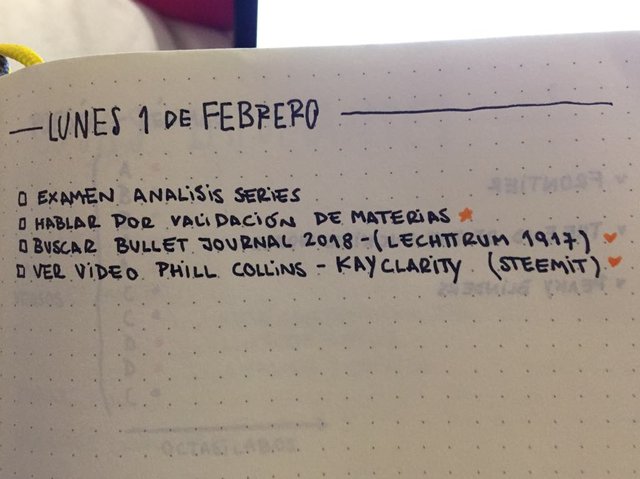 LUNES 1 DE FEBRERO
EXAMEN ANALISIS SERIES
HABLAR POR VALIDACIÓN DE MATERIAS
BUSCAR BULLET JOURNAL 2018 - (LECHTTRUM 1917)
VER VIDEO PHILL COLLINS - KAYCLARITY (STEEMIT)
FRONTIER
PEAKY BLINDERS